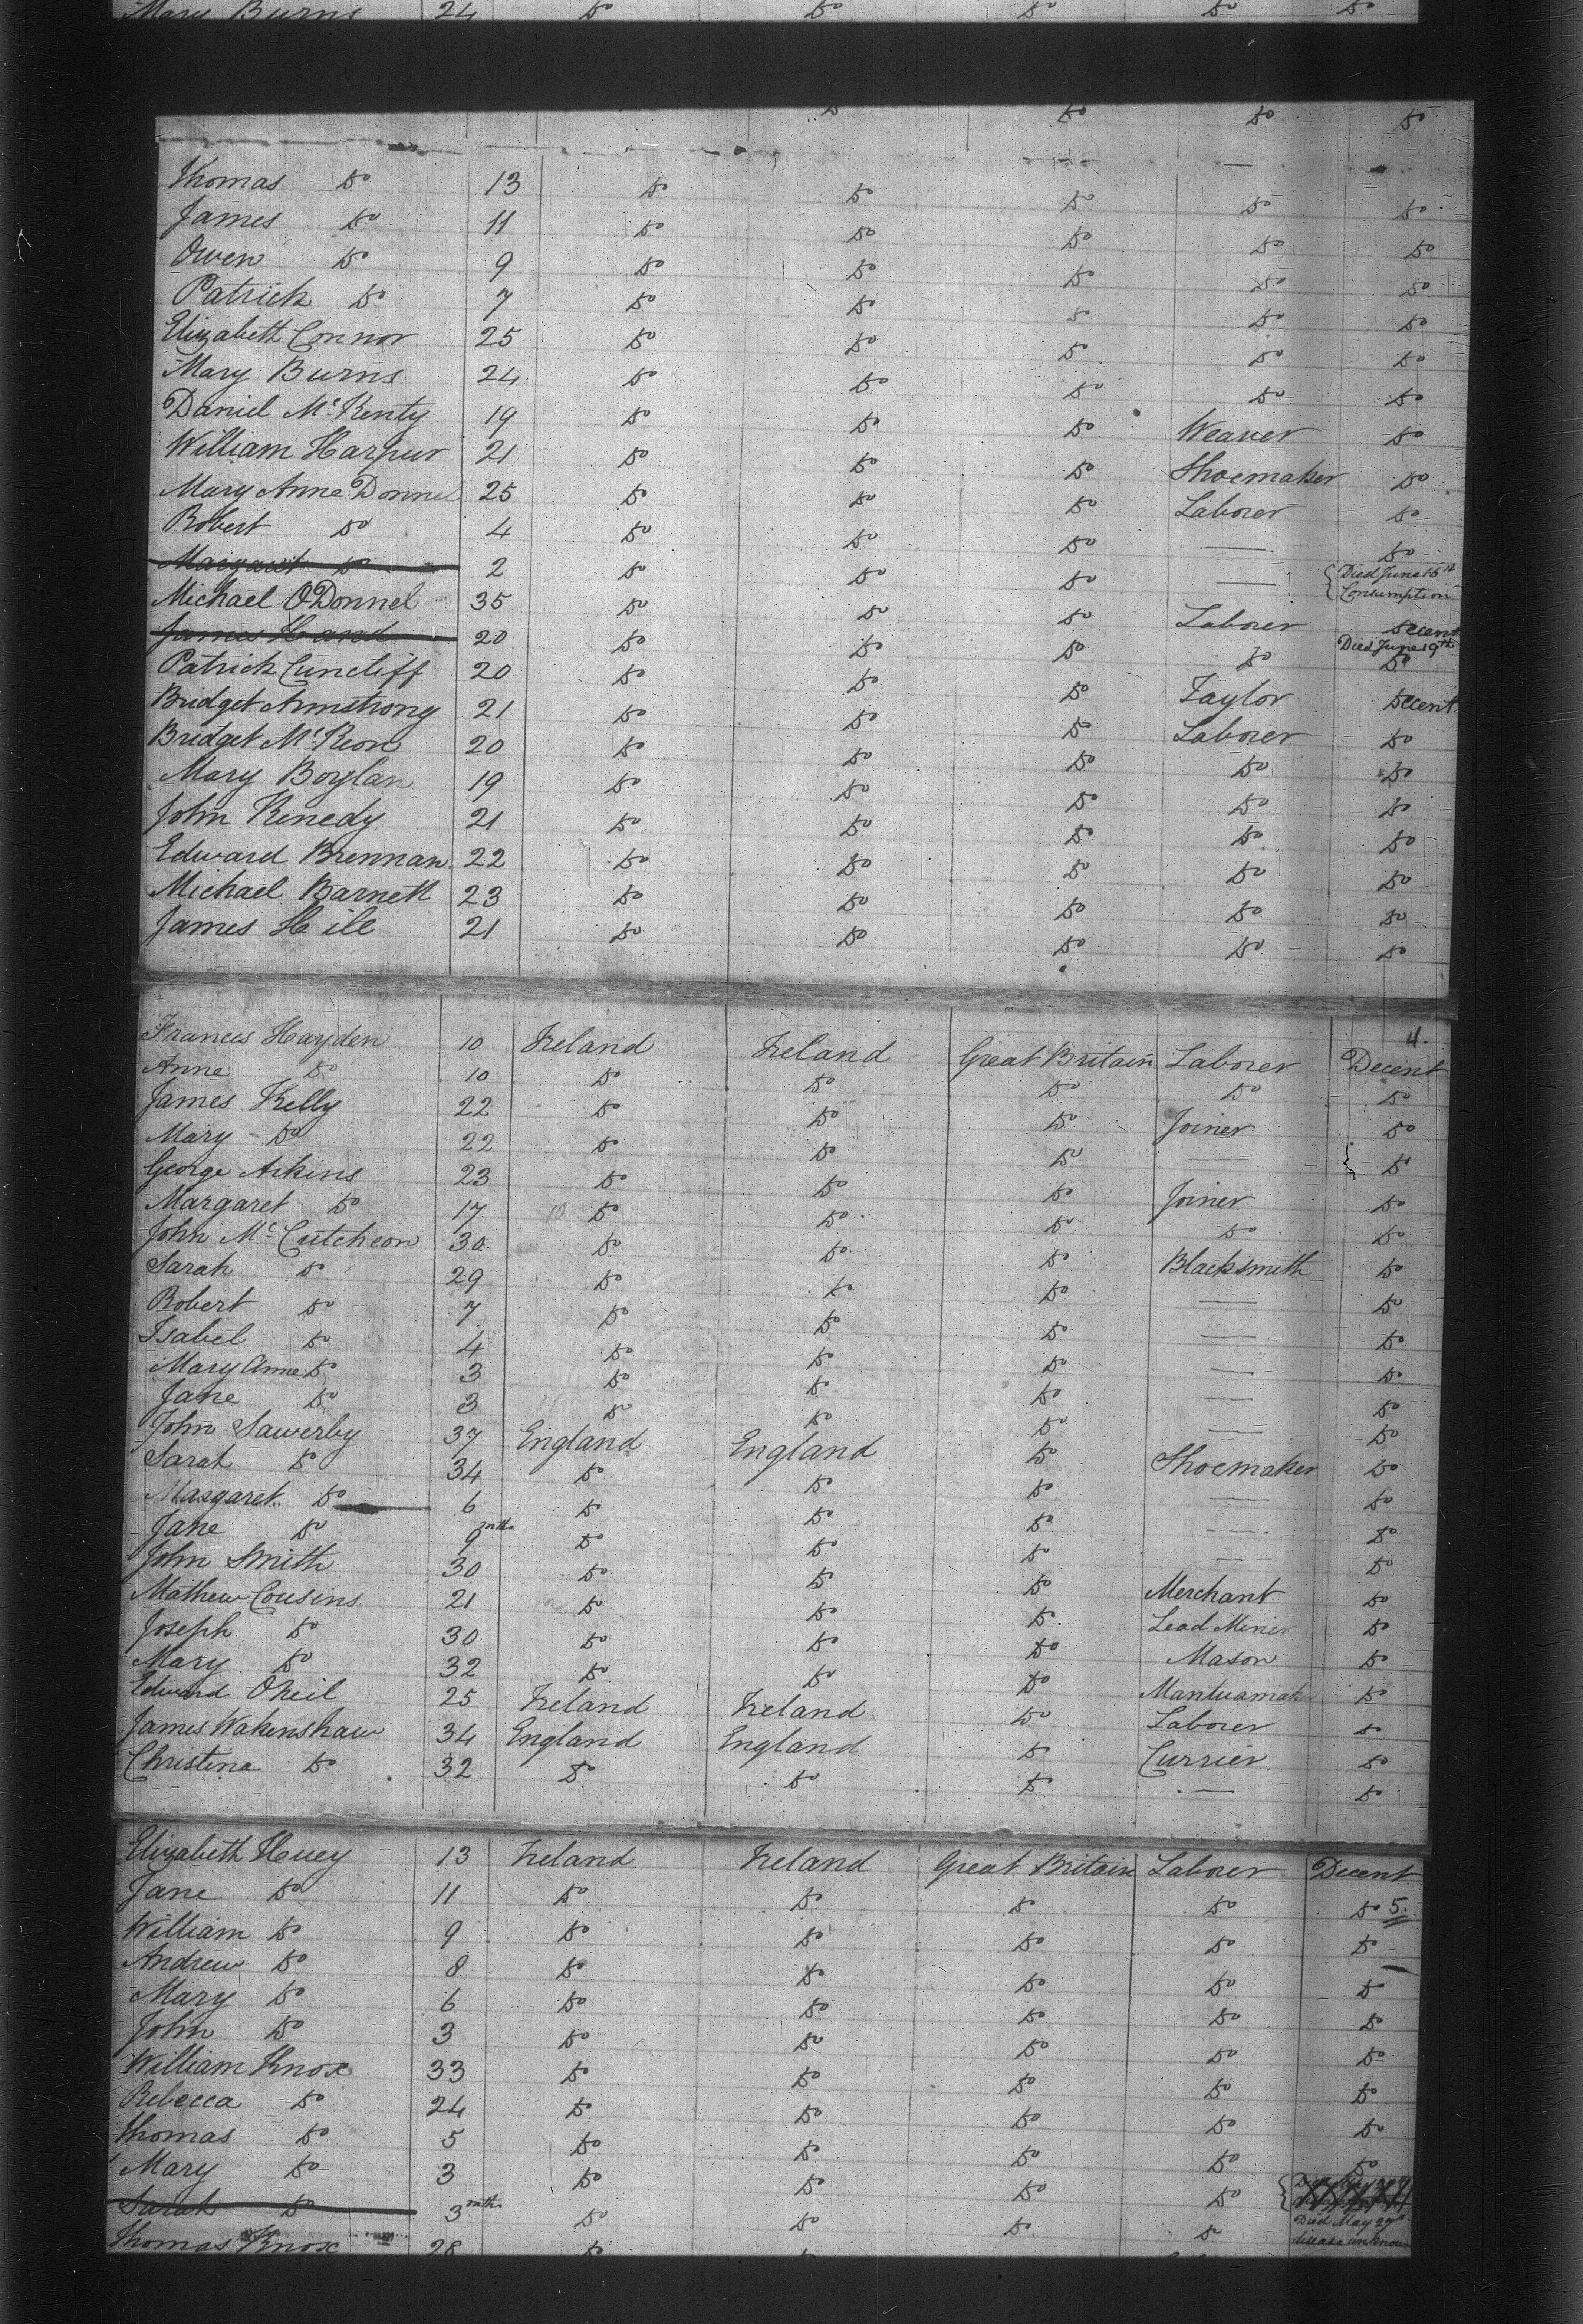 Mary Burns 24 Do Do Do Do Do
Do Do Do Do
Thomas Do 13 Do Do Do Do Do
James Do 11 Do Do Do Do Do
Owen Do 9 Do Do Do Do Do
Patrick Do 7 Do Do Do Do Do
Elizabeth Connor 25 Do Do Do Do Do
Mary Burns 24 Do Do Do Do Do
Daniel McKenty 19 Do Do Do Weaver Do
William Harpur 21 Do Do Do Shoemaker Do
Mary Anne Donnel 25 Do Do Do Laborer Do
Robert Do 4 Do Do Do — Do
Margaret Do 2 Do Do Do — Died June 15th Consumption
Michael ODonnel 35 Do Do Do Laborer Decent
James Hand 20 Do Do Do Do Died June 19th Do
Patrick Cuncliff 20 Do Do Do Taylor Decent
Bridget Armstrong 21 Do Do Do Laborer Do
Bridget McKeon 20 Do Do Do Do Do
Mary Boylan 19 Do Do Do Do Do
John Kenedy 21 Do Do Do Do Do
Edward Brennan 22 Do Do Do Do Do
Michael Barnett 23 Do Do Do Do Do
James Hill 21 Do Do Do Do Do
4.
Frances Hayden 10 Ireland Ireland Great Britain Laborer Decent
Anne Do 10 Do Do Do Do Do
James Kelly 22 Do Do Do Joiner Do
Mary Do 22 Do Do Do — Do
George Askins 23 Do Do Do Joiner Do
Margaret Do 17 Do Do Do Do Do
John McCutcheon 30 Do Do Do Blacksmith Do
Sarah Do 29 Do Do Do — Do
Robert Do 7 Do Do Do — Do
Isabel Do 4 Do Do Do — Do
Mary Anne Do 3 Do Do Do — Do
Jane Do 3 Do Do Do — Do
John Sawerby 37 England England Do Shoemaker Do
Sarah Do 34 Do Do Do — Do
Margaret Do 6 Do Do Do — Do
Jane Do 9 mths Do Do Do — Do
John Smith 30 Do Do Do Merchant Do
Mathew Cousins 21 Do Do Do Lead Miner Do
Joseph Do 30 Do Do Do Mason Do
Mary Do 32 Do Do Do Mantuamaker Do
Edward ONeil 25 Ireland Ireland Do Laborer Do
James Wakenshaw 34 England England Do Currier Do
Christina Do 32 Do Do Do — Do
Elizabeth Huey 13 Ireland Ireland Great Britain Laborer Decent
Jane Do 11 Do Do Do Do Do 5.
William Do 9 Do Do Do Do Do
Andrew Do 8 Do Do Do Do Do
Mary Do 6 Do Do Do Do Do
John Do 3 Do Do Do Do Do
William Knox 33 Do Do Do Do Do
Rebecca Do 24 Do Do Do Do Do
Thomas Do 5 Do Do Do Do Do
Mary Do 3 Do Do Do Do
Sarah Do 3 mths Do Do Do Do Died May 27th disease unknown
Thomas Knox 28 Do